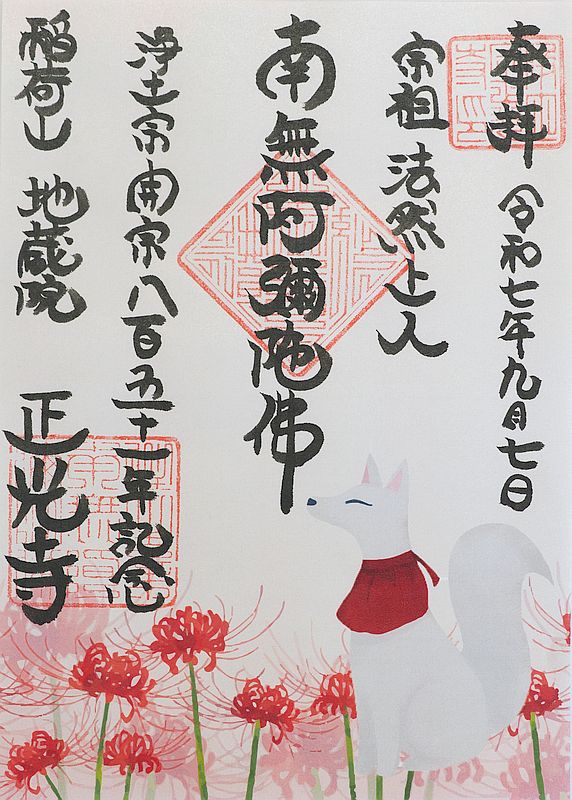 奉拝 令和七年九月七日
宗祖 法然上人
南無阿彌陀佛
浄土宗開宗八百五十一年記念
稲荷山 地蔵院
正光寺